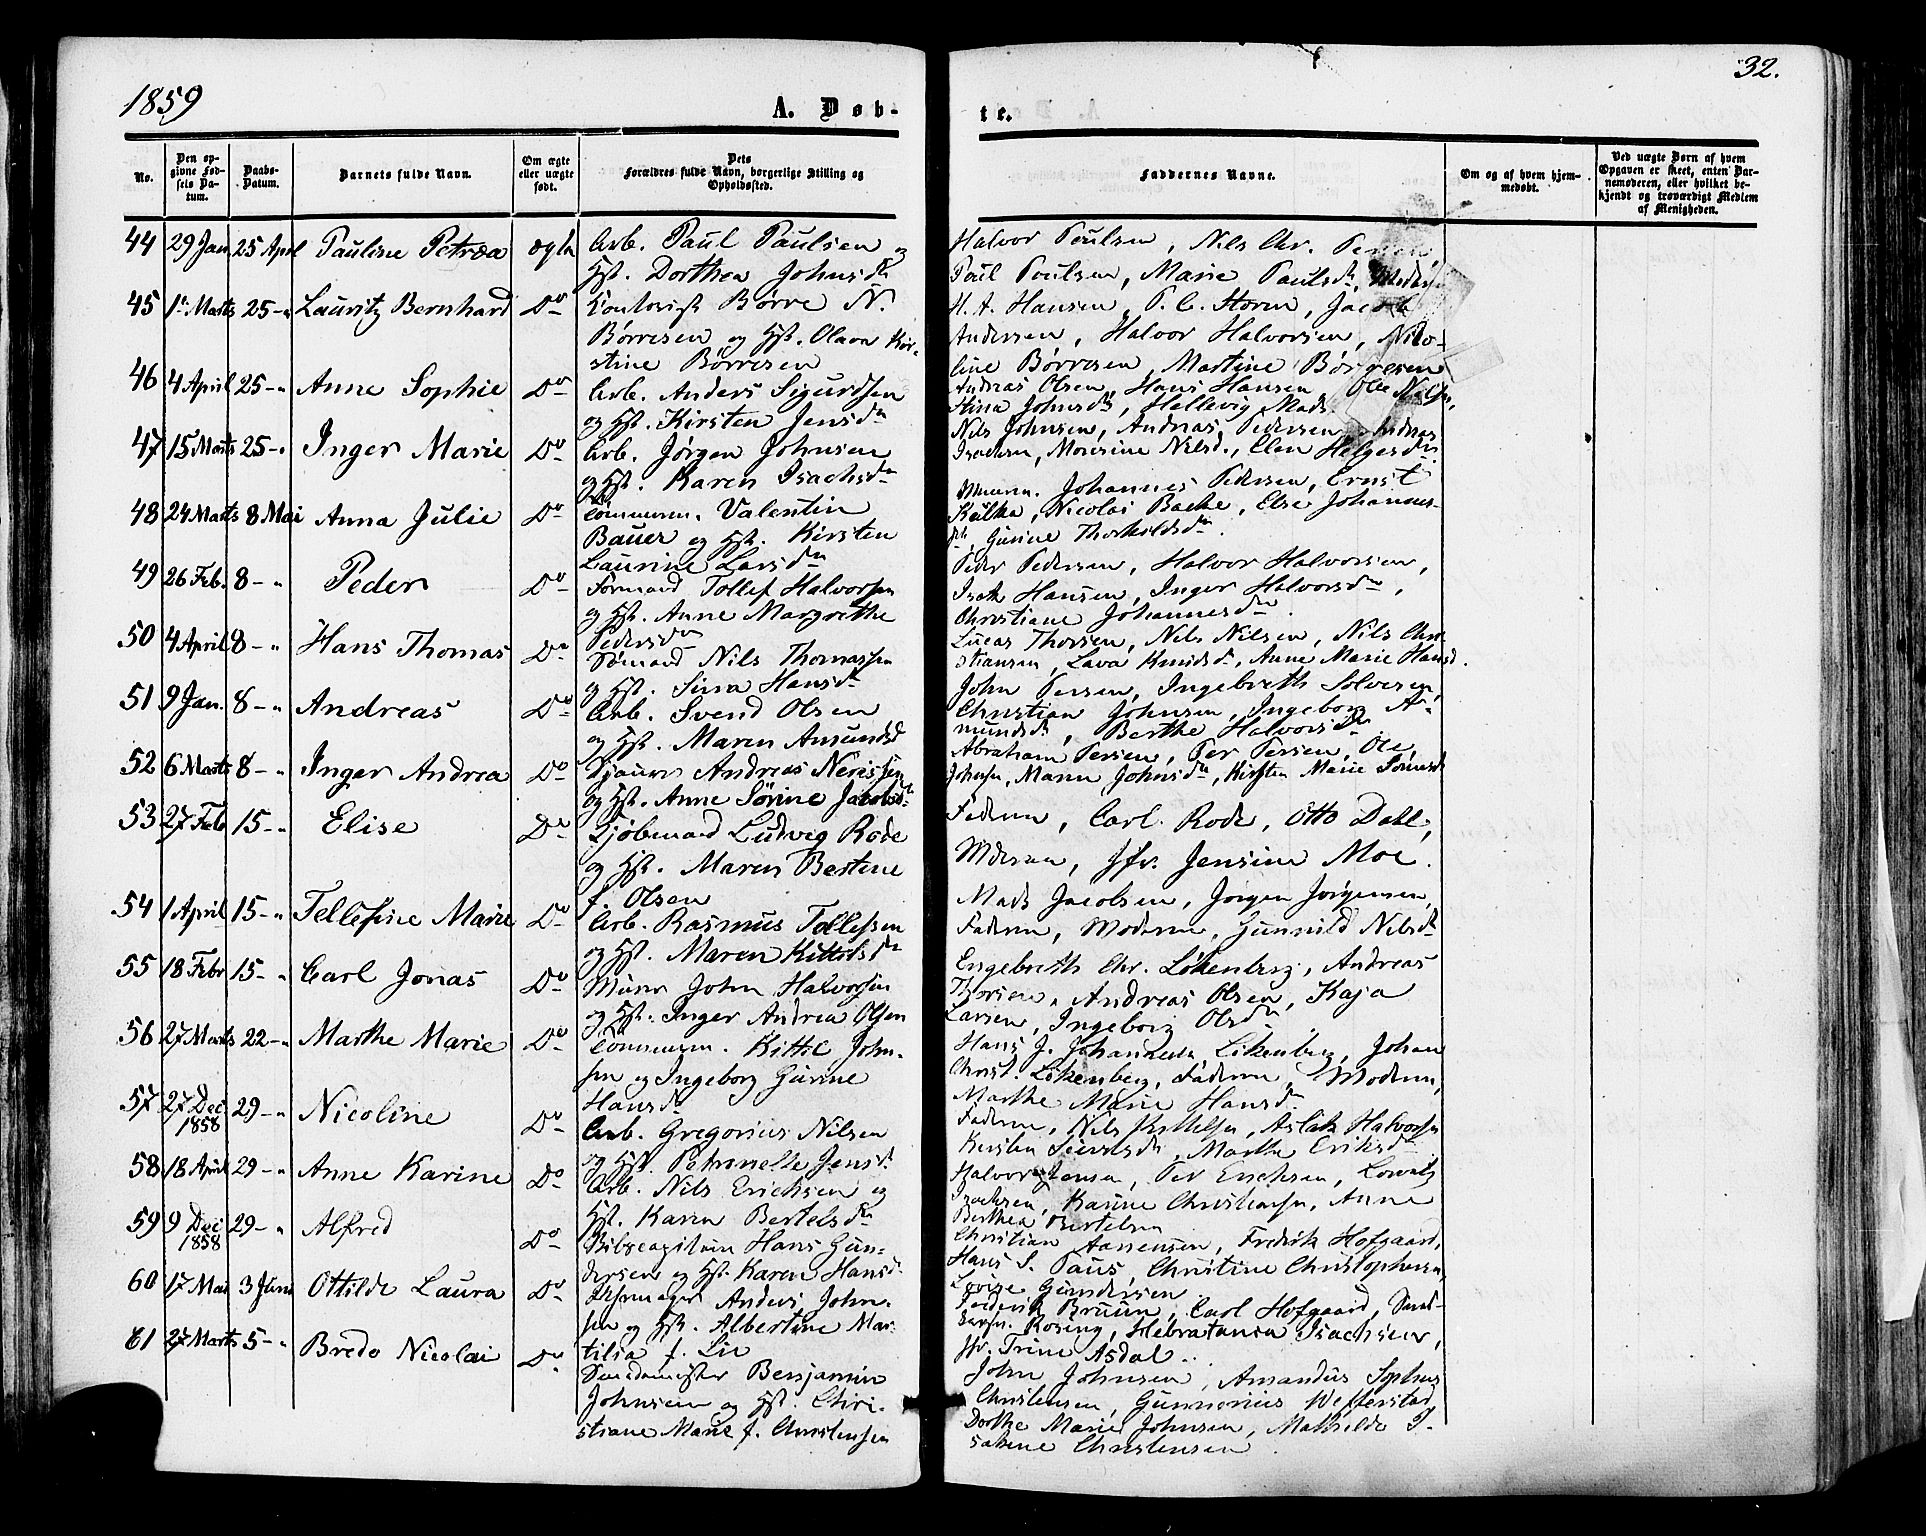 1859
32.
A. Døb-
te.
No.
Den op-
givne Fød-
sels Da-
tum.
Daabs-
Datum.
Barnets fulde Navn.
Om ægte
eller uægte
født.
Dets
Forældres fulde Navn, borgerlige Stilling og
Opholdssted.
Faddernes Navne.
Om og af hvem hjem-
medøbt.
Ved uægte Børn af hvem
Opgaven er skeet, enten Bar-
nemoderen, eller hvilket be-
kjendt og troværdigt Medlem
af Menigheden.
44 29 Jan. 25 April Pauline Petrea ægte Arb. Paul Paulsen og
Hst. Dorthea Johnsdn
Halvor Poulsen, Nils Chr.
Poul Poulsen, Marie Paulsdn,
45 1 Marts 25 - " Lauritz Bernhard Do Contorist Børre N.
Børresen og Hst. Olava Kir-
stine Børresen
H. A. Hansen, P. C. Storm, Jacob
Andersen, Halvor Halvorsen, Nico-
line Børresen, Martine Børresen
46 4 April 25 - " Anne Sophie Do Arb. Anders Sigurdsen
og Hst. Kirsten Jensdn
Andreas Olsen, Hans Hansen Ole Nilsen,
Stina Johnsdn, Hellevig Mads.
47 15 Marts 25 - " Inger Marie Do Arb. Jørgen Johnsen
og Hst. Karen Isachsdn
Nils Johnsen, Andreas Pedersen, Andreas
Isachsen, Mowisine Nilsd., Elen Helgesdn
48 24 Marts 8 Mai Anna Julie Do Tømmerm. Valentin
Bauer og Hst. Kirsten
Laurine Larsdn
Johannes Pedersen, Ernst
Kulka, Nicolai Backe, Else Johannes-
dn, Gurine Thorkildsdn.
49 26 Feb. 8 - " Peder Do Formand Tollef Halvorsen
og Hst. Anne Margrethe
Pedersdn
Peder Pedersen, Halvor Halvorsen,
Isak Hansen, Inger Halvorsdn,
Christiane Johannesdn.
50 4 April 8 - " Hans Thomas Do Sømand Nils Thomassen
og Hst. Sina Hansdn
Lucas Thorsen, Nils Nilsen, Nils Chri-
stiansen, Lava Knudsdn, Anne Marie Hansd.
51 9 Jan. 8 - " Andreas Do Arb. Svend Olsen
og Hst. Maren Amundsd
John Persen, Ingebreth Solvesen,
Christian Johnsen, Ingeborg A-
mundsdn, Berthe Halvorsdn
52 6 Marts 8 - " Inger Andrea Do Andreas Nerissen
og Hst. Anne Sørine Jacobsdn
Abraham Persen, Per Persen, Ole
Johnsen, Maren Johnsdn, Kirsten Marie
53 27 Feb 15 - " Elise Do Kjøbmand Ludvig Rode
og Hst. Maren Bertine
f. Olsen
Faderen, Carl Rode, Otto Dahl,
Moderen, Jfr. Jensine Moe.
54 1 April 15 - " Tellefine Marie Do Arb. Rasmus Tollefsen
og Hst. Maren Kittelsdn
Mads Jacobsen, Jørgen Jørgensen,
Faderen, Moderen, Gunnild Nilsdn
55 18 Febr 15 - " Carl Jonas Do Murer John Halvorsen
og Hst. Inger Andrea Olsen
Engebreth Chr. Løkenberg, Andreas
Thorsen, Andreas Olsen, Kaja
Larsen, Ingeborg Olsdn.
56 27 Marts 22 - " Marthe Marie Do Tømmerm. Kittil John-
sen og Ingeborg Gurine
Hansdn
Hans J. Johannesen Løkenberg, Johan
Christ. Løkenberg, Faderen, Moderen,
Marthe Marie Hansdn
57 27 Dec 1858 29 - " Nicoline Do Arb. Gregorius Nilsen
og Hst. Petronelle Jensd.
Faderen, Nils Kittelsen, Aslak Halvorsen
Kirsten Sivertsdn, Marthe Eriksdn
58 18 April 29 - " Anne Karine Do Arb. Nils Erichsen og
Hst. Karen Bertelsdn
Halvor Jensen, Per Erichsen, Lorentz
Isachsen, Karine Christiansen, Anne
Berthea Bertelsen
59 9 Dec 1858 29 - " Alfred Do Hans Gun-
dersen og Hst. Karen Hansd.
Christian Aanensen, Fredrik Hofgaard,
Hans S. Paus Christine Christophersen,
Lovise Gundersen
60 17 Mai 3 Juni Ottilde Laura Do Anders John-
sen og Hst. Albertine Mar-
tilia f. Lie
Frederik Bruun, Carl Hofgaard,
Rosing, Isachsen,
Jfr. Trine Asdal.
61 27 Marts 5 - " Bredo Nicolai Do Smedemester Benjamin
Johnsen og Hst. Chri-
stiane Marie f. Christensen
John Johnsen, Amandus Sophus
Christensen, Gunnerius Wefferstad
Dorthe Marie Johnsen, Mathilde I-
sakine Christensen.